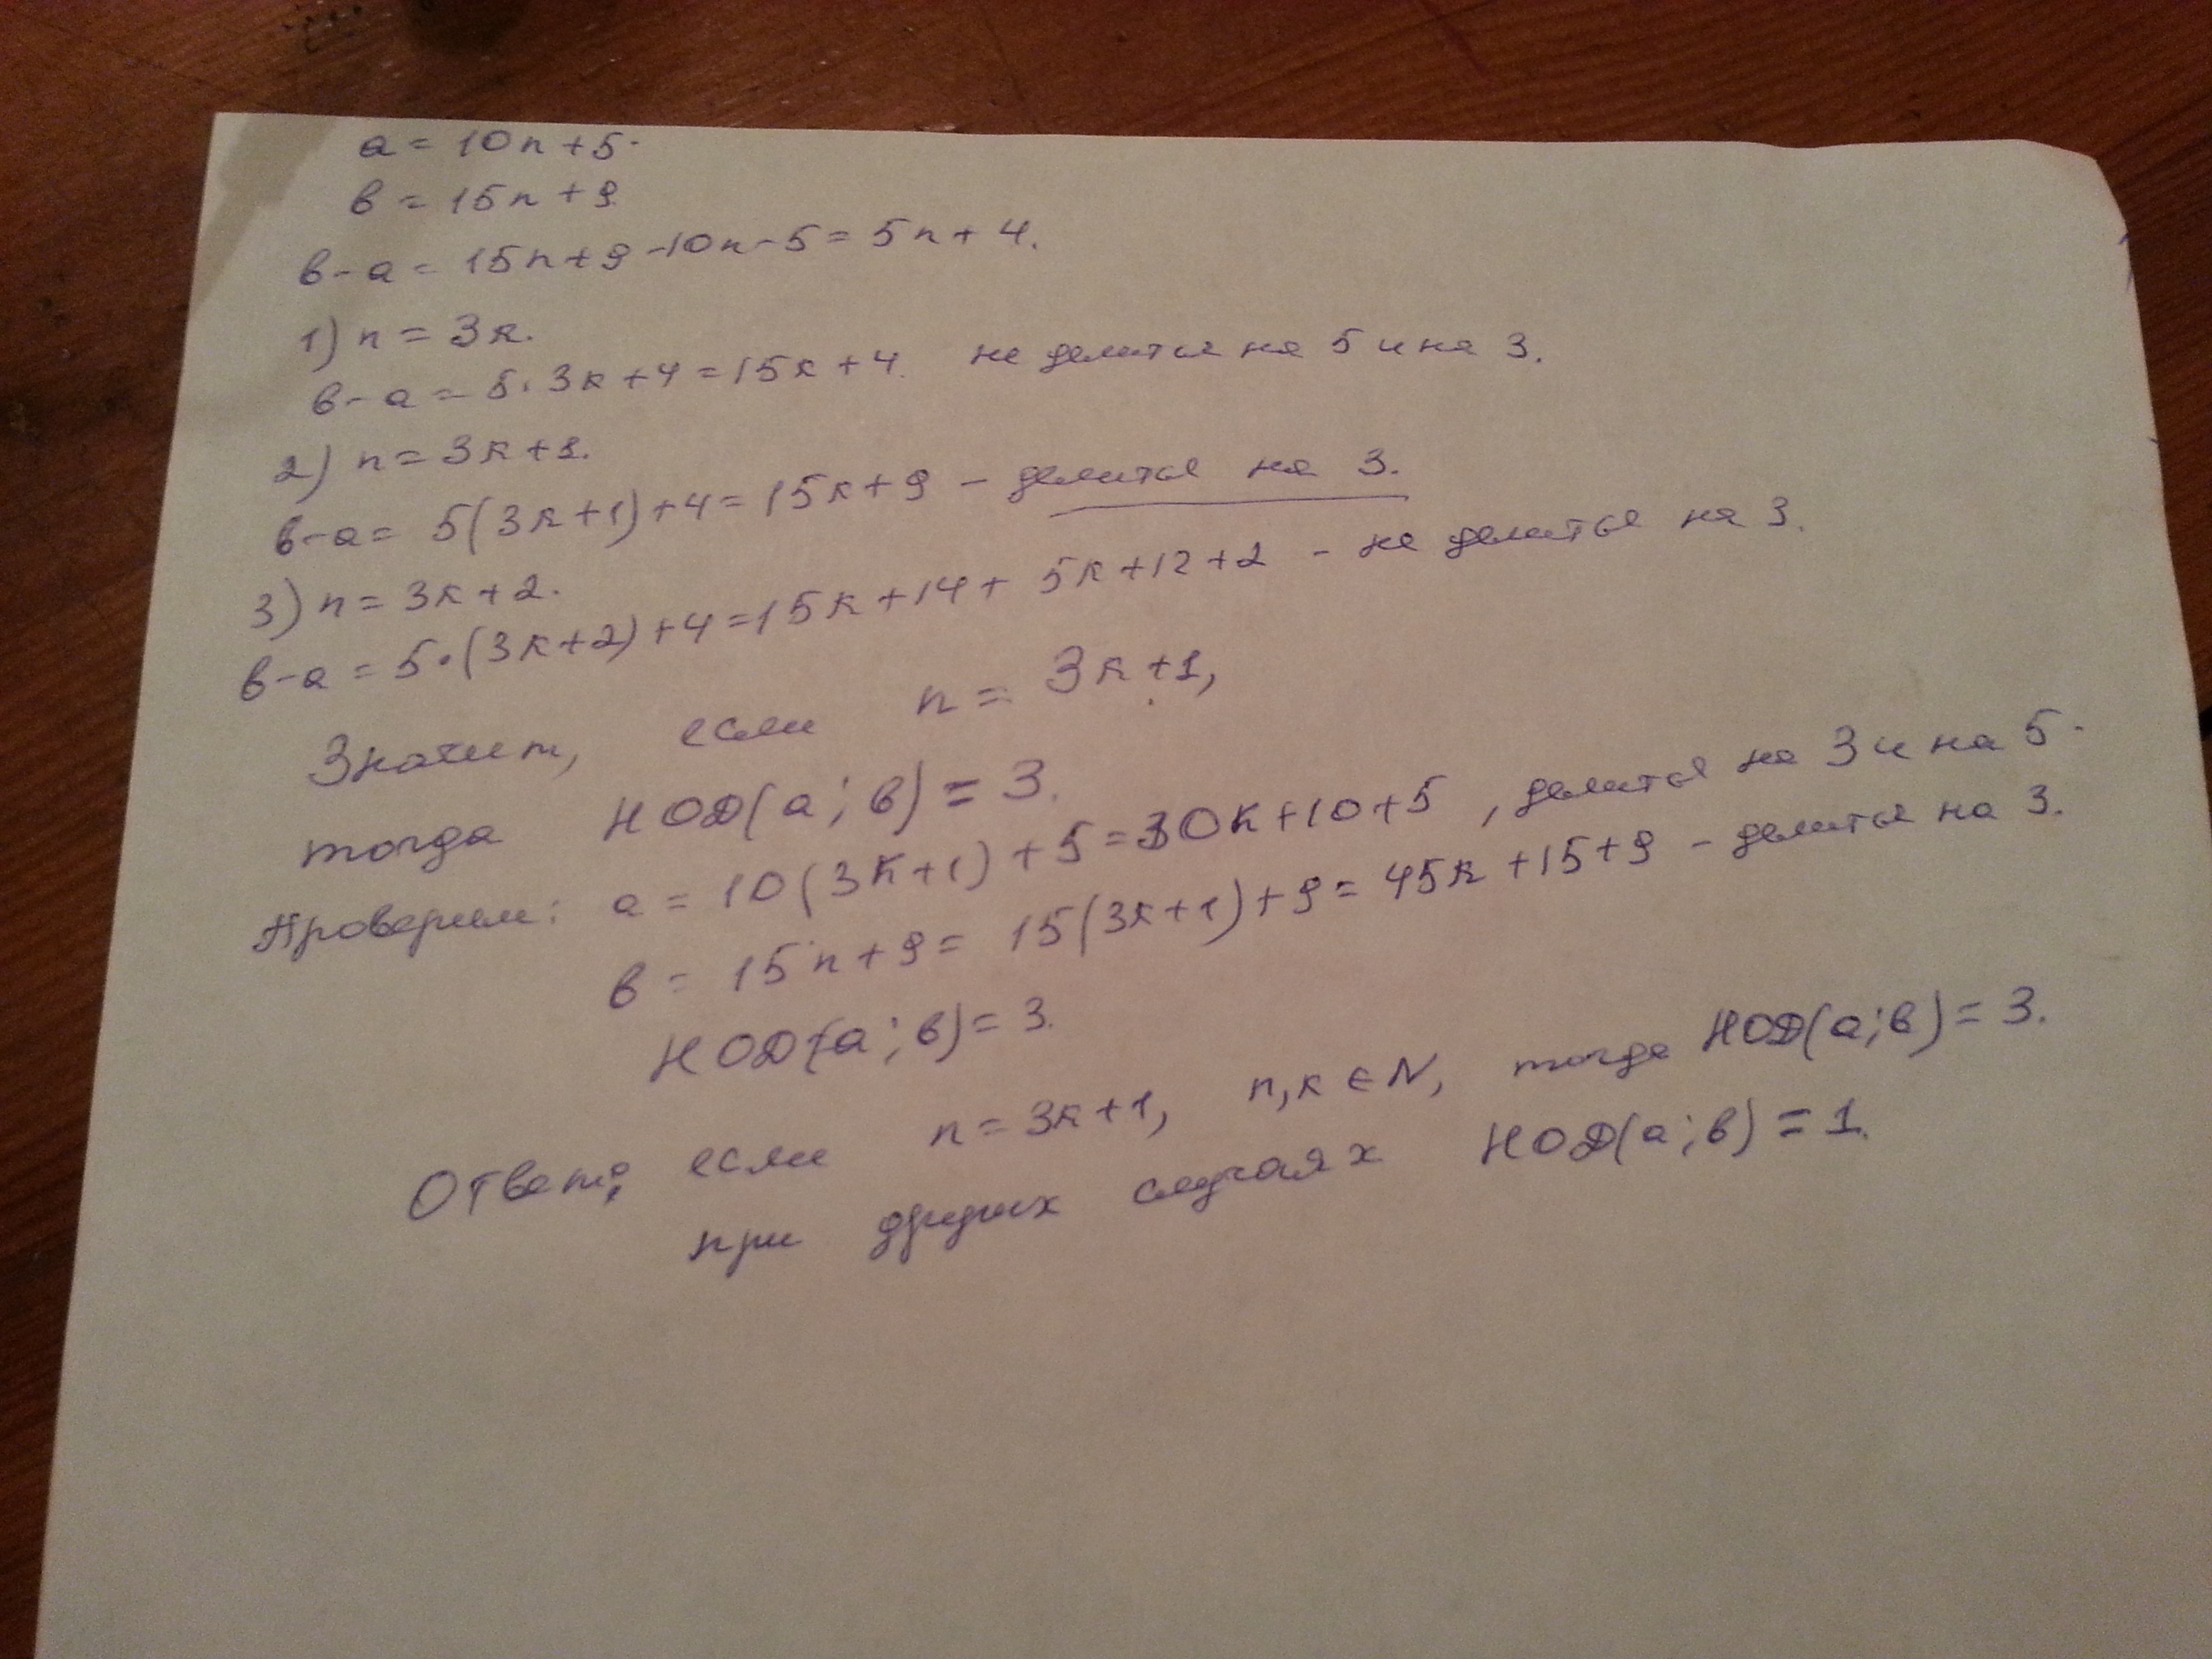 a = 10n + 5.
в = 15n + 9
в - a = 15n + 9 - 10n - 5 = 5n + 4.
1) n = 3к.
в - a = 5 · 3к + 4 = 15к + 4. не делится на 5 и на 3.
2) n = 3к + 1.
в - a = 5(3к + 1) + 4 = 15к + 9 - делится на 3.
3) n = 3к + 2.
в - a = 5 · (3к + 2) + 4 = 15к + 14 + 5к + 12 + 2 - не делится на 3.
Значит, если n = 3к + 1,
тогда НОД(a; в) = 3.
Проверим: a = 10(3к + 1) + 5 = 30к + 10 + 5, делится на 3 и на 5.
в = 15n + 9 = 15(3к + 1) + 9 = 45к + 15 + 9 - делится на 3.
НОД(a; в) = 3.
Ответ: если n = 3к + 1, n, к ∈ N, тогда НОД(a; в) = 3.
при других случаях НОД(a; в) = 1.